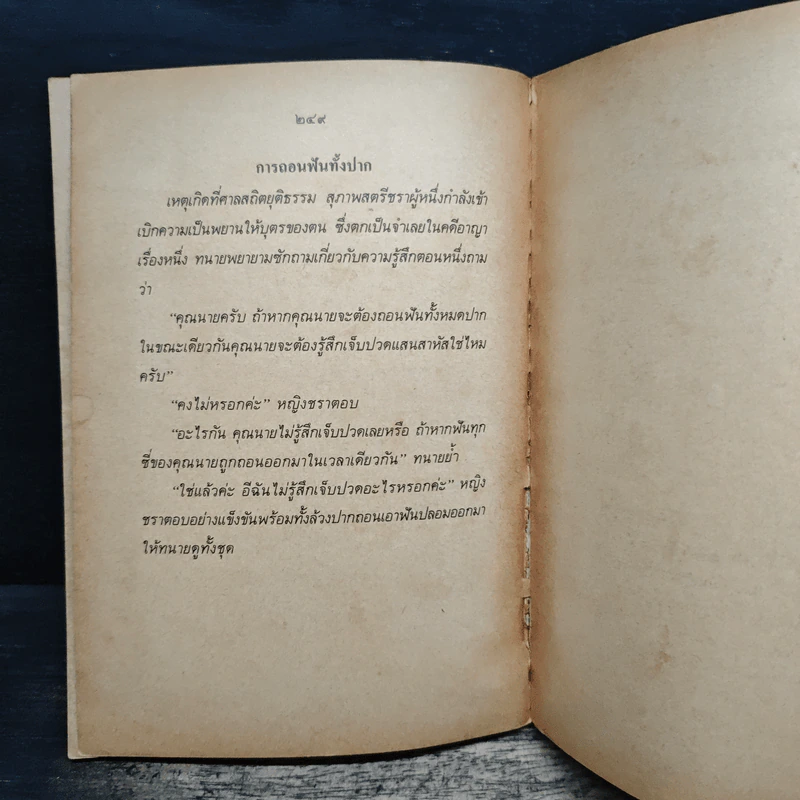 ๒๔๙
การถอนฟันทั้งปาก
เหตุเกิดที่ศาลสถิตยุติธรรม สุภาพสตรีชราผู้หนึ่งกำลังเข้า
เบิกความเป็นพยานให้บุตรของตน ซึ่งตกเป็นจำเลยในคดีอาญา
เรื่องหนึ่ง ทนายพยายามซักถามเกี่ยวกับความรู้สึกตอนหนึ่งถาม
ว่า
“คุณนายครับ ถ้าหากคุณนายจะต้องถอนฟันทั้งหมดปาก
ในขณะเดียวกันคุณนายจะต้องรู้สึกเจ็บปวดแสนสาหัสใช่ไหม
ครับ”
“คงไม่หรอกค่ะ” หญิงชราตอบ
“อะไรกัน คุณนายไม่รู้สึกเจ็บปวดเลยหรือ ถ้าหากฟันทุก
ซี่ของคุณนายถูกถอนออกมาในเวลาเดียวกัน” ทนายย้ำ
“ใช่แล้วค่ะ อีฉันไม่รู้สึกเจ็บปวดอะไรหรอกค่ะ” หญิง
ชราตอบอย่างแข็งขันพร้อมทั้งล้วงปากถอนเอาฟันปลอมออกมา
ให้ทนายดูทั้งชุด